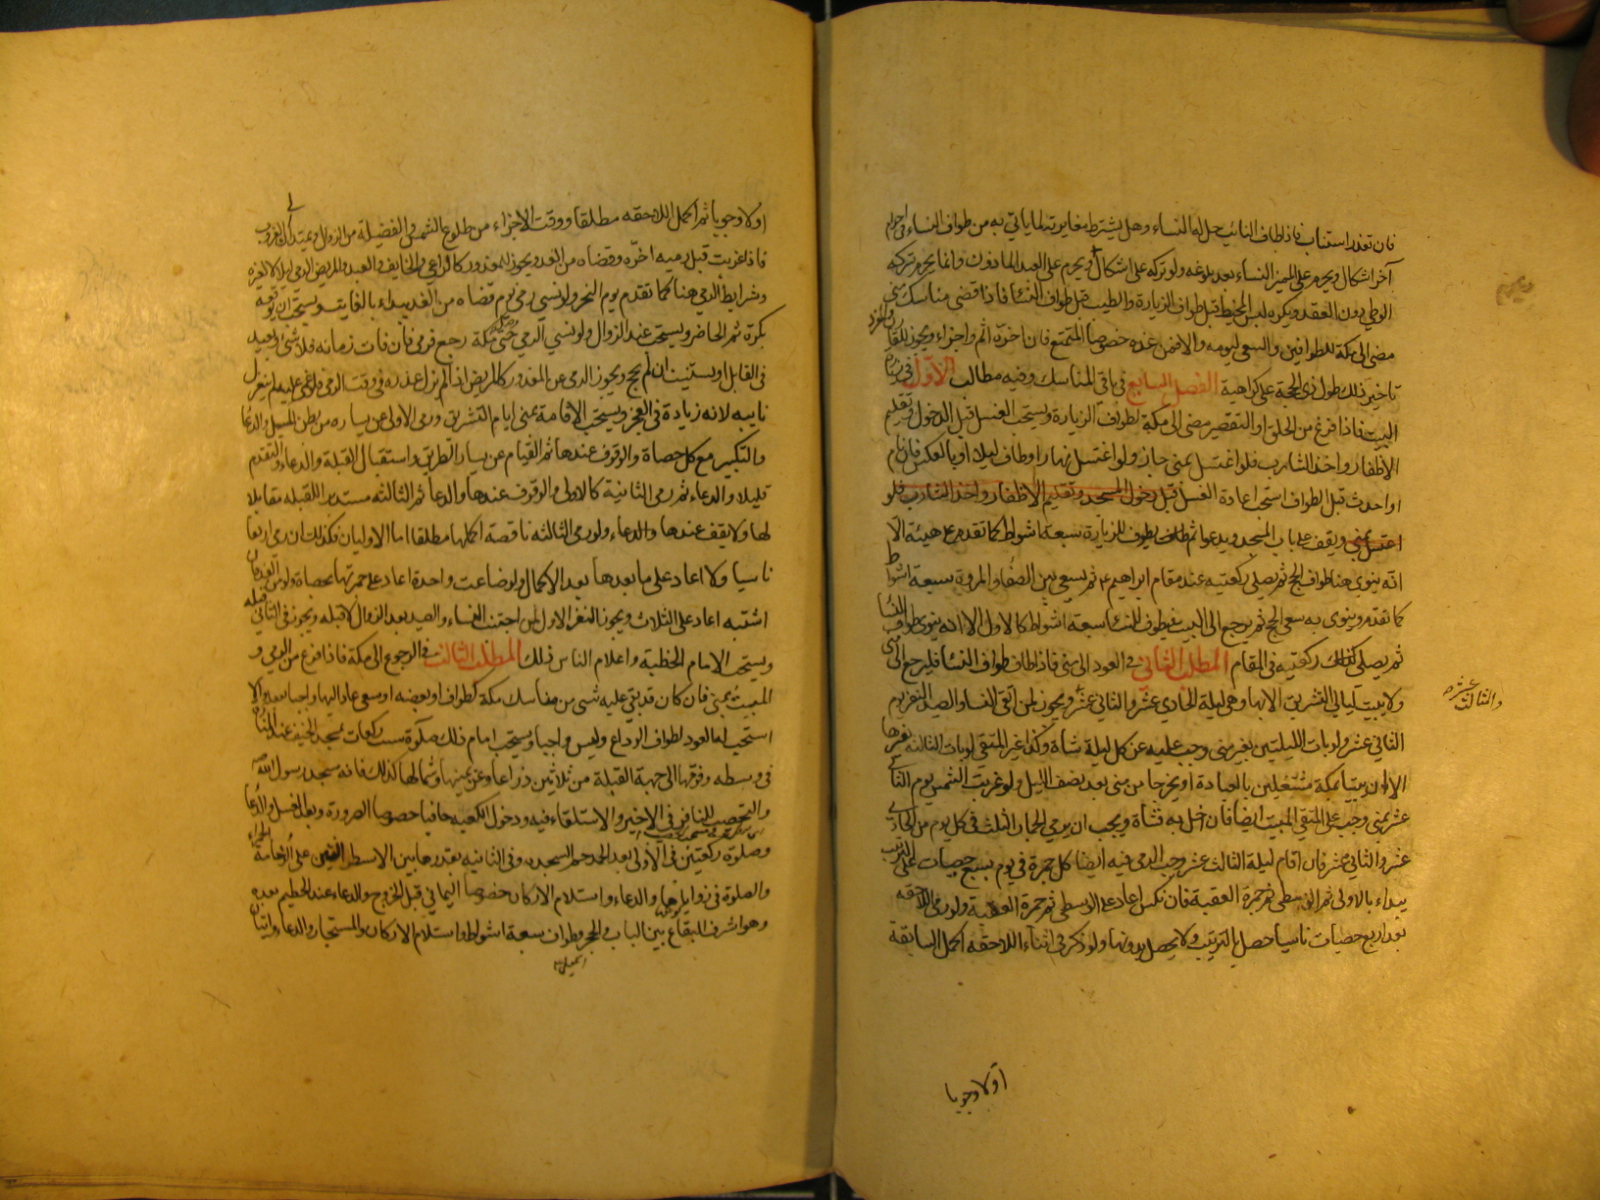 فان تعذر استناب فاذا طاف النائب حل له النساء وهل يشترط مغايرته لما ياتي به من طواف النساء في احرام
آخر اشكال ويحرم على المميز النساء بعد بلوغه ولو تركه على اشكال ويحرم على العبد الماذون وانما يحرم تركه
الوطي دون العقد ويكره لبس المخيط قبل طواف الزيارة والطيب قبل طواف النسا فاذا قضى مناسك منى
مضى الى مكة للطوافين والسعي ليومه والا فمن غده خصوصا المتمتع فان اخره اثم واجزاء ويجوز للقارن والمفرد
تاخير ذلك طول ذي الحجة على كراهية الفصل السابع في باقي المناسك وفيه مطالب الاول في زيارة
البيت فاذا فرغ من الحلق او التقصير مضى الى مكة لطواف الزيارة ويستحب الغسل قبل الدخول وتقليم
الاظفار واخذ الشارب فلو اغتسل بمنى جاز ولو اغتسل نهارا وطاف ليلا او بالعكس فان نام
او احدث قبل الطواف استحب اعادة الغسل قبل دخول المسجد وتقليم الاظفار واخذ الشارب فلو
اغتسل بمنى ويقف على باب المسجد ويدعو ثم يطوف للزيارة سبعة اشواط كما تقدم على هيئته الا
انه ينوي هنا طواف الحج ثم يصلي ركعتيه عند مقام ابراهيم ع ثم يسعى بين الصفا والمروة سبعة اشواط
كما تقدم وينوي به سعي الحج ثم يرجع الى البيت فيطوف للنسا سبعة اشواط كالاول الا انه ينوي طواف النسا
ثم يصلي كذلك ركعتيه في المقام المطلب الثاني في العود الى منى فاذا طاف طواف النسا فليرجع الى منى
ولا يبيت ليالي التشريق الا بها وهي ليلة الحادي عشر والثاني عشر ويجوز لمن اتقى النساء والصيد النفر يوم
والثالث عشر
الثاني عشر ولو بات الليلتين بغير منى وجب عليه عن كل ليلة شاة وكذا غير المتقي لو بات الثالثة بغيرها
الا ان يبيتا بمكة مشتغلين بالعبادة او يخرجا من منى بعد نصف الليل ولو غربت الشمس يوم الثاني
عشر بمنى وجب على المتقي المبيت ايضا فان اخل به فشاة ويجب ان يرمي الجمار الثلث في كل يوم من الحادي
عشر والثاني عشر فان اقام ليلة الثالث عشر وجب الرمي فيه ايضا كل جمرة في يوم بسبع حصيات على الترتيب
يبداء بالاولى ثم الوسطى ثم جمرة العقبة فان نكس اعاد على الوسطى ثم جمرة العقبة ولو رمى اللاحقة
بعد اربع حصيات ناسيا حصل بالترتيب ولا يحصل بدونها ولو ذكر في اثناء اللاحقة اكمل السابقة
اولا وجوبا
اولا وجوبا ثم اكمل اللاحقه مطلقا ووقت الاجزاء من طلوع الشمس والفضيلة من الزوال ويمتد الى الغروب
فاذا غربت قبل رميه اخره وقضاه من الغد ويجوز للمعذور كالراعي والخايف والعبد والمريض الرمي ليلا لا لغيره
وشرايط الرمي هنا كما تقدم يوم النحر ولو نسي رمي يوم قضاه من الغد يبداء بالفايت ويستحب ان يوقعه
بكرة ثم الحاضر ويستحب عند الزوال ولو نسي الرمي حتى وصل مكة رجع فرمى فان فات زمانه فلا شئ ويعيد
في القابل او يستنيب ان لم يحج ويجوز الرمي عن المعذور كالمريض اذا لم يزل عذره في وقت الرمي فلو اغمي عليه لم ينعزل
نايبه لانه زيادة في العجز ويستحب الاقامة بمنى ايام التشريق ورمي الاولى عن يساره من بطن المسيل والدعا
والتكبير مع كل حصاة والوقوف عندها ثم القيام عن يسار الطريق واستقبال القبلة والدعاء والتقدم
قليلا والدعاء ثم رمي الثانية كالاولى والوقوف عندها والدعا ثم الثالثه مستدبر القبله مقابلا
لها ولا يقف عندها والدعاء ولو رمى الثالثه ناقصة اكملها مطلقا اما الاوليان فكذلك ان رمى اربعا
ناسيا والا اعاد على ما بعدها بعد الاكمال ولو ضاعت واحدة اعاد على جمرتها بحصاة ولو من الغد فان
اشتبه اعاد على الثلاث ويجوز النفر الاول لمن اجتنب النساء والصيد بعد الزوال لا قبله ويجوز في الثاني قبله
ويستحب الامام الخطبة واعلام الناس ذلك المطلب الثالث في الرجوع الى مكة فاذا فرغ من الرمي و
المبيت بمنى فان كان قد بقي عليه شئ من مناسك مكة كطواف او بعضه او سعي عاد اليها واجبا لفعله والا
استحب له العود لطواف الوداع وليس واجبا ويستحب امام ذلك صلوة ست ركعات بمسجد الخيف عند المنارة
في وسطه وفوقها الى جهة القبلة من ثلاثين ذراعا وعن يمينها وشمالها كذلك فانه مسجد رسول الله ص
والتحصيب للنافر في الاخير والاستلقاء فيه ودخول الكعبة حافيا خصوصا الصرورة وبعد الغسل والدعا
وصلوة ركعتين في الاولى بعد الحمد حم السجدة وفي الثانيه بقدرها بين الاسطوانتين على الرخامة الحمراء
والصلوة في زواياها والدعاء واستلام الاركان خصوصا اليماني قبل الخروج والدعاء عند الحطيم بعده
وهو اشرف البقاع بين الباب والحجر وطواف سبعة اشواط واستلام الاركان والمستجار والدعاء واتيان